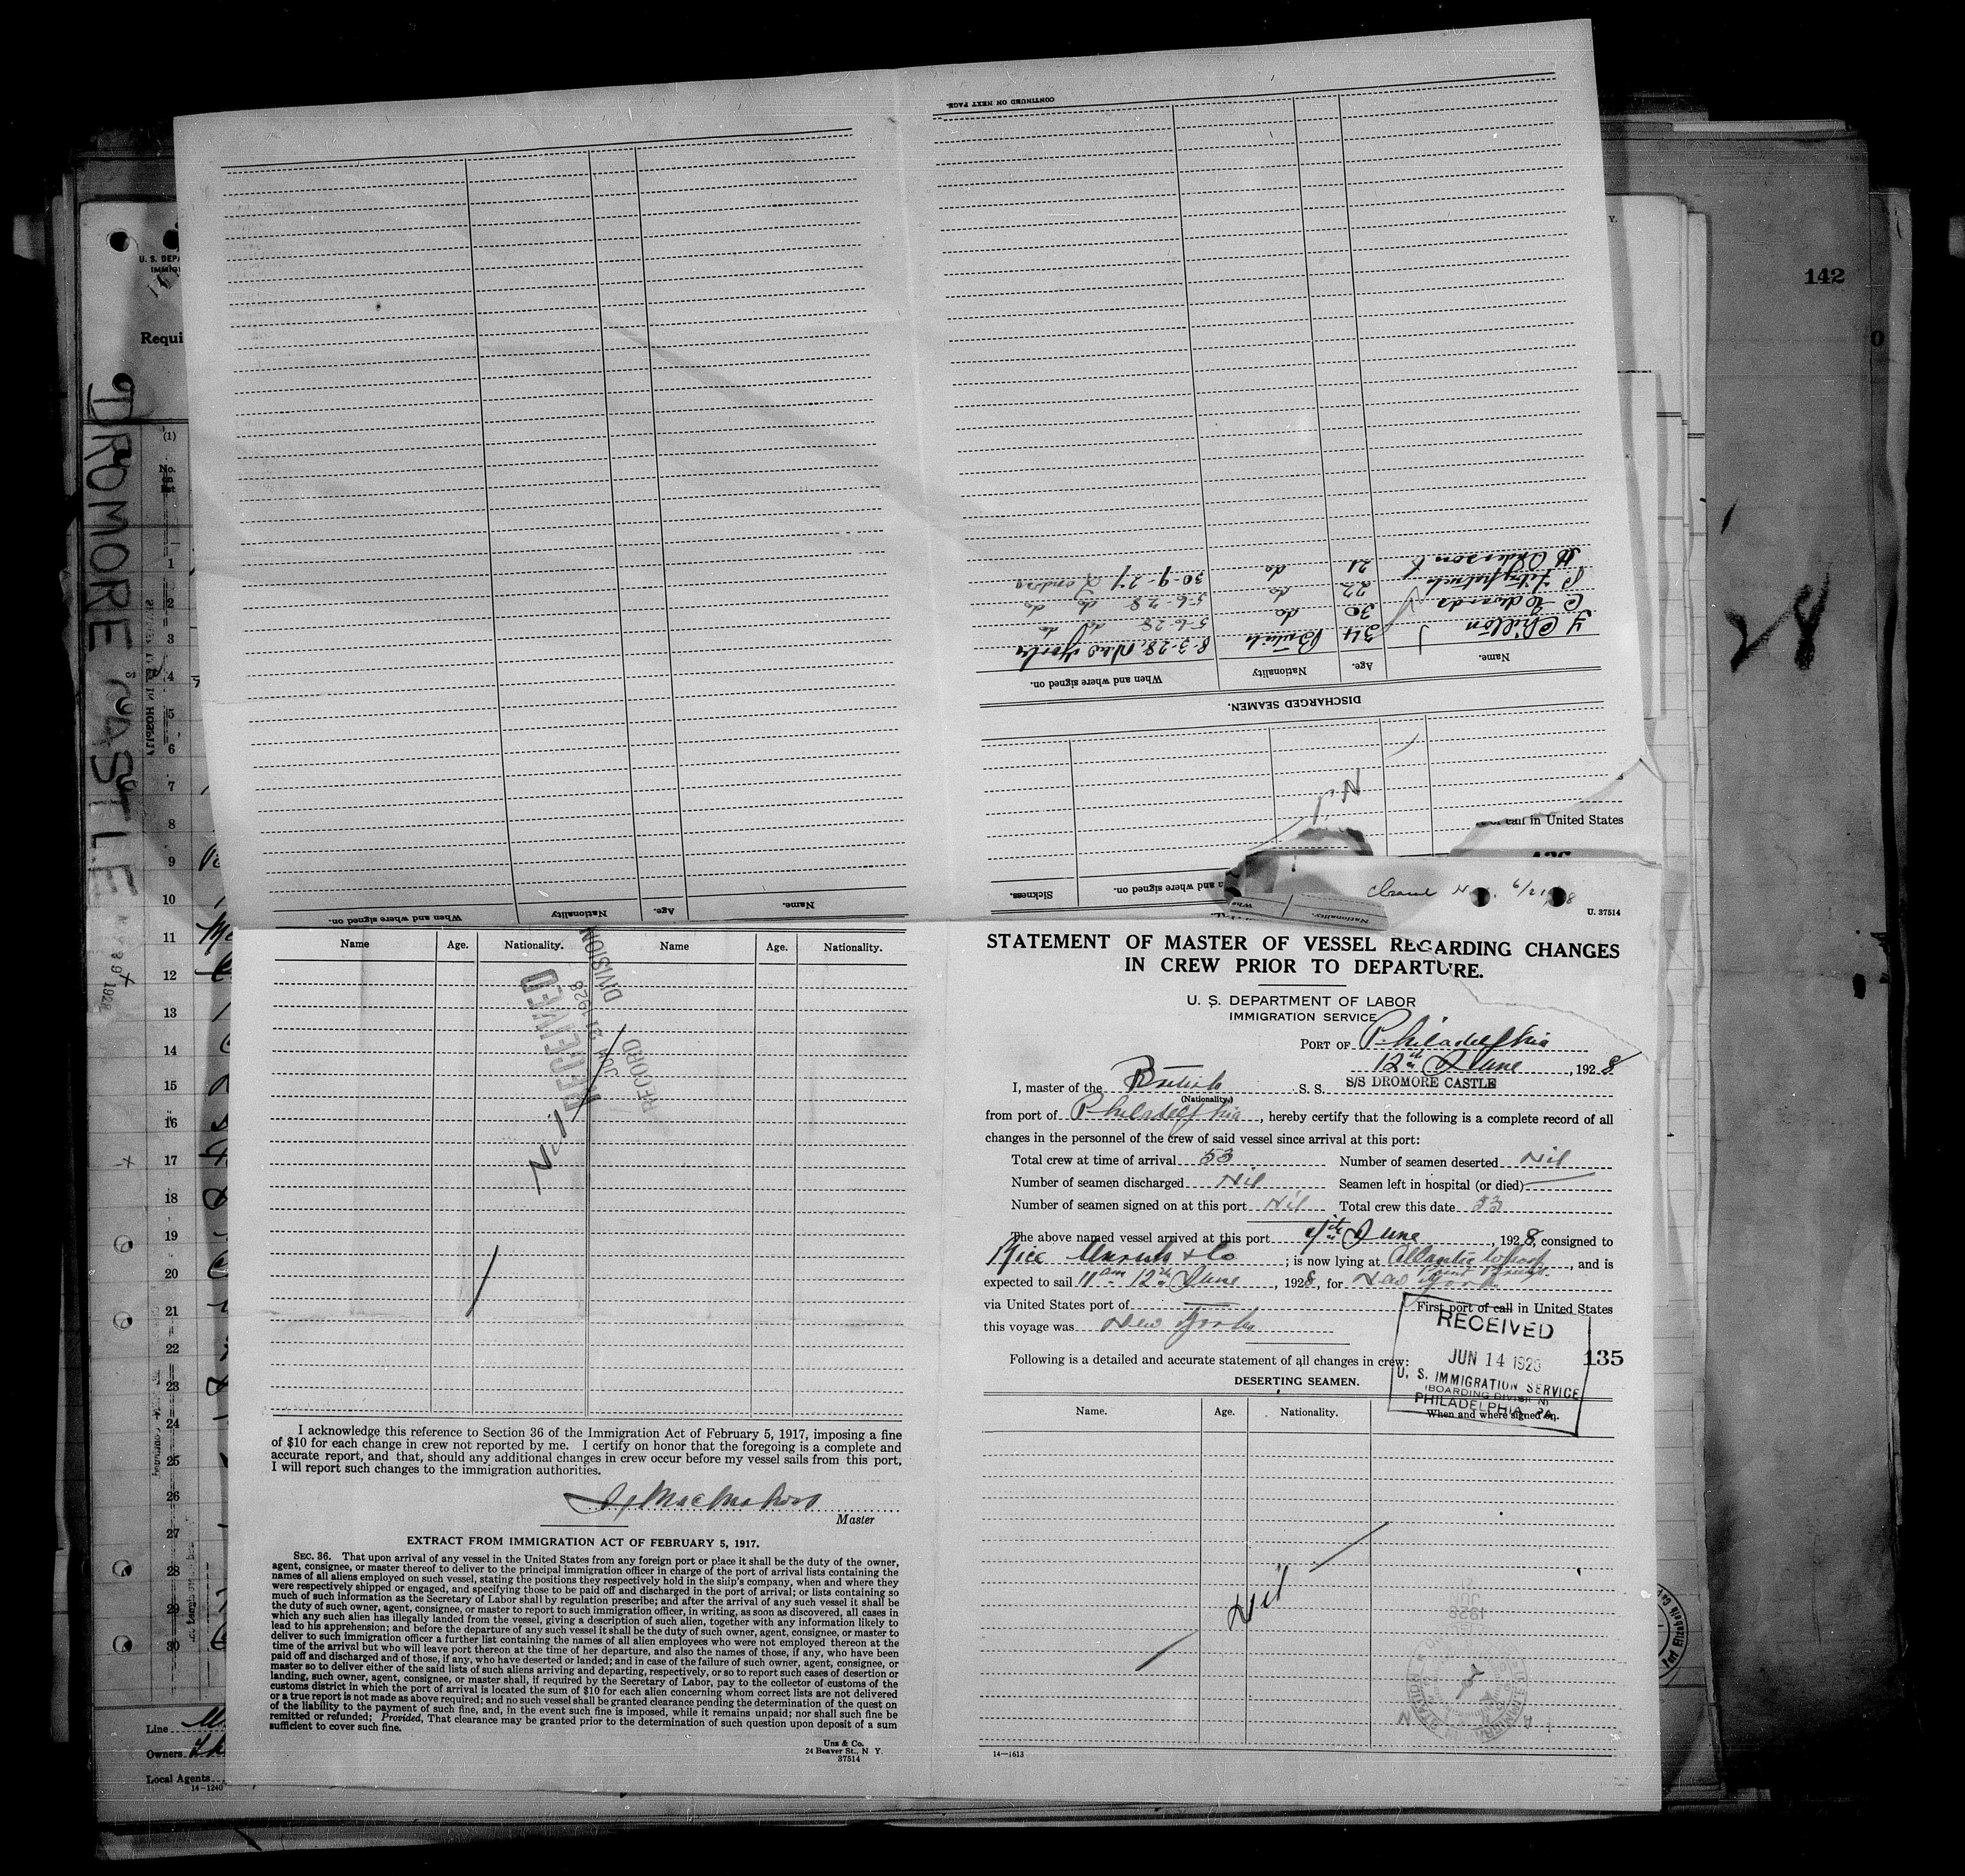 142
28
DROMORE CASTLE
CONTINUED ON NEXT PAGE.
H Anderson 21 do 30-9-27 London
P Fitzpatrick 22 do 5-6-28 do do
C Edwards 30 do 5-6-28 do do
F Chilton 34 British 8-3-28 New York
Name. Age. Nationality When and where signed on.
DISCHARGED SEAMEN.
Nil
call in United States
Sickness.
Name. Age. Nationality When and where signed on.
6/21/28
U. 37514
STATEMENT OF MASTER OF VESSEL REGARDING CHANGES
IN CREW PRIOR TO DEPARTURE.
U. S. DEPARTMENT OF LABOR
IMMIGRATION SERVICE
PORT OF Philadelphia
12th June, 1928
I, master of the British S. S. S/S DROMORE CASTLE
(Nationality.)
from port of Philadelphia, hereby certify that the following is a complete record of all
changes in the personnel of the crew of said vessel since arrival at this port:
Total crew at time of arrival 53 Number of seamen deserted Nil
Number of seamen discharged Nil Seamen left in hospital (or died)
Number of seamen signed on at this port Nil Total crew this date 53
The above named vessel arrived at this port June, 1928, consigned to
Rice Unruh & Co; is now lying at Atlantic Wharf, and is
expected to sail 11 am 12th June, 1928, for New York
via United States port of First port of call in United States
this voyage was New York
RECEIVED
JUN 14 1928
U. S. IMMIGRATION SERVICE
(BOARDING DIVISION)
PHILADELPHIA, PA.
135
Following is a detailed and accurate statement of all changes in crew:
DESERTING SEAMEN.
Name. Age. Nationality. When and where signed on.
Nil
14—1613
Name Age. Nationality. Name Age. Nationality.
RECEIVED
JUN 21 1928
RECORD DIVISION
Nil
I acknowledge this reference to Section 36 of the Immigration Act of February 5, 1917, imposing a fine
of $10 for each change in crew not reported by me. I certify on honor that the foregoing is a complete and
accurate report, and that, should any additional changes in crew occur before my vessel sails from this port,
I will report such changes to the immigration authorities.
Master
EXTRACT FROM IMMIGRATION ACT OF FEBRUARY 5, 1917.
SEC. 36. That upon arrival of any vessel in the United States from any foreign port or place it shall be the duty of the owner,
agent, consignee, or master thereof to deliver to the principal immigration officer in charge of the port of arrival lists containing the
names of all aliens employed on such vessel, stating the positions they respectively hold in the ship's company, when and where they
were respectively shipped or engaged, and specifying those to be paid off and discharged in the port of arrival; or lists containing so
much of such information as the Secretary of Labor shall by regulation prescribe; and after the arrival of any such vessel it shall be
the duty of such owner, agent, consignee, or master to report to such immigration officer, in writing, as soon as discovered, all cases in
which any such alien has illegally landed from the vessel, giving a description of such alien, together with any information likely to
lead to his apprehension; and before the departure of any such vessel it shall be the duty of such owner, agent, consignee, or master to
deliver to such immigration officer a further list containing the names of all alien employees who were not employed thereon at the
time of the arrival but who will leave port thereon at the time of her departure, and also the names of those, if any, who have been
paid off and discharged and of those, if any, who have deserted or landed; and in case of the failure of such owner, agent, consignee, or
master so to deliver either of the said lists of such aliens arriving and departing, respectively, or so to report such cases of desertion or
landing, such owner, agent, consignee, or master shall, if required by the Secretary of Labor, pay to the collector of customs of the
customs district in which the port of arrival is located the sum of $10 for each alien concerning whom correct lists are not delivered
or a true report is not made as above required; and no such vessel shall be granted clearance pending the determination of the quest on
of the liability to the payment of such fine, and, in the event such fine is imposed, while it remains unpaid; nor shall such fine be
remitted or refunded; Provided, That clearance may be granted prior to the determination of such question upon deposit of a sum
sufficient to cover such fine.
Unz & Co.
24 Beaver St., N Y.
37514
U. S. DEPA
IMMIG
Requi
(1)
No.
1
2
3
4
5
6
7
8
9
10
11
12
13
14
15
16
17
18
19
20
21
22
23
24
25
26
27
28
29
30
Line
Owners
Local Agents
14-1240